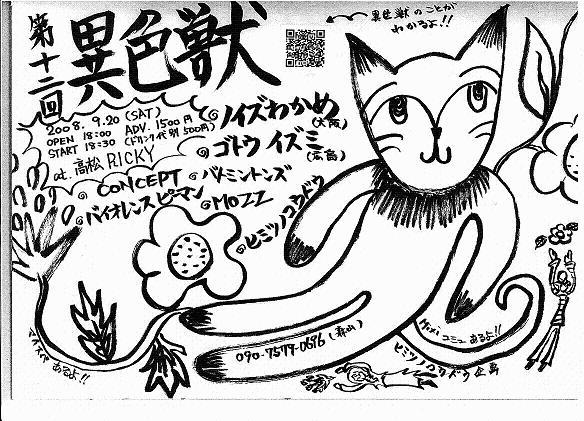 第十二回
異色獣
異色獣のことが
わかるよ!!
2008. 9.20 (SAT)
OPEN 18:00 ADV. 1500円
START 18:30 (ドリンク代別 500円)
at. 高松 RICKY
ノイズわかめ
(大阪)
ゴトウイズミ
(広島)
CONCEPT
バドミントンズ
バイオレンスピーマン
MOZZ
ヒミツノコウドウ
マイスペ
あるよ!!
Mixi コミュ あるよ!!
ヒミツノコウドウ企画